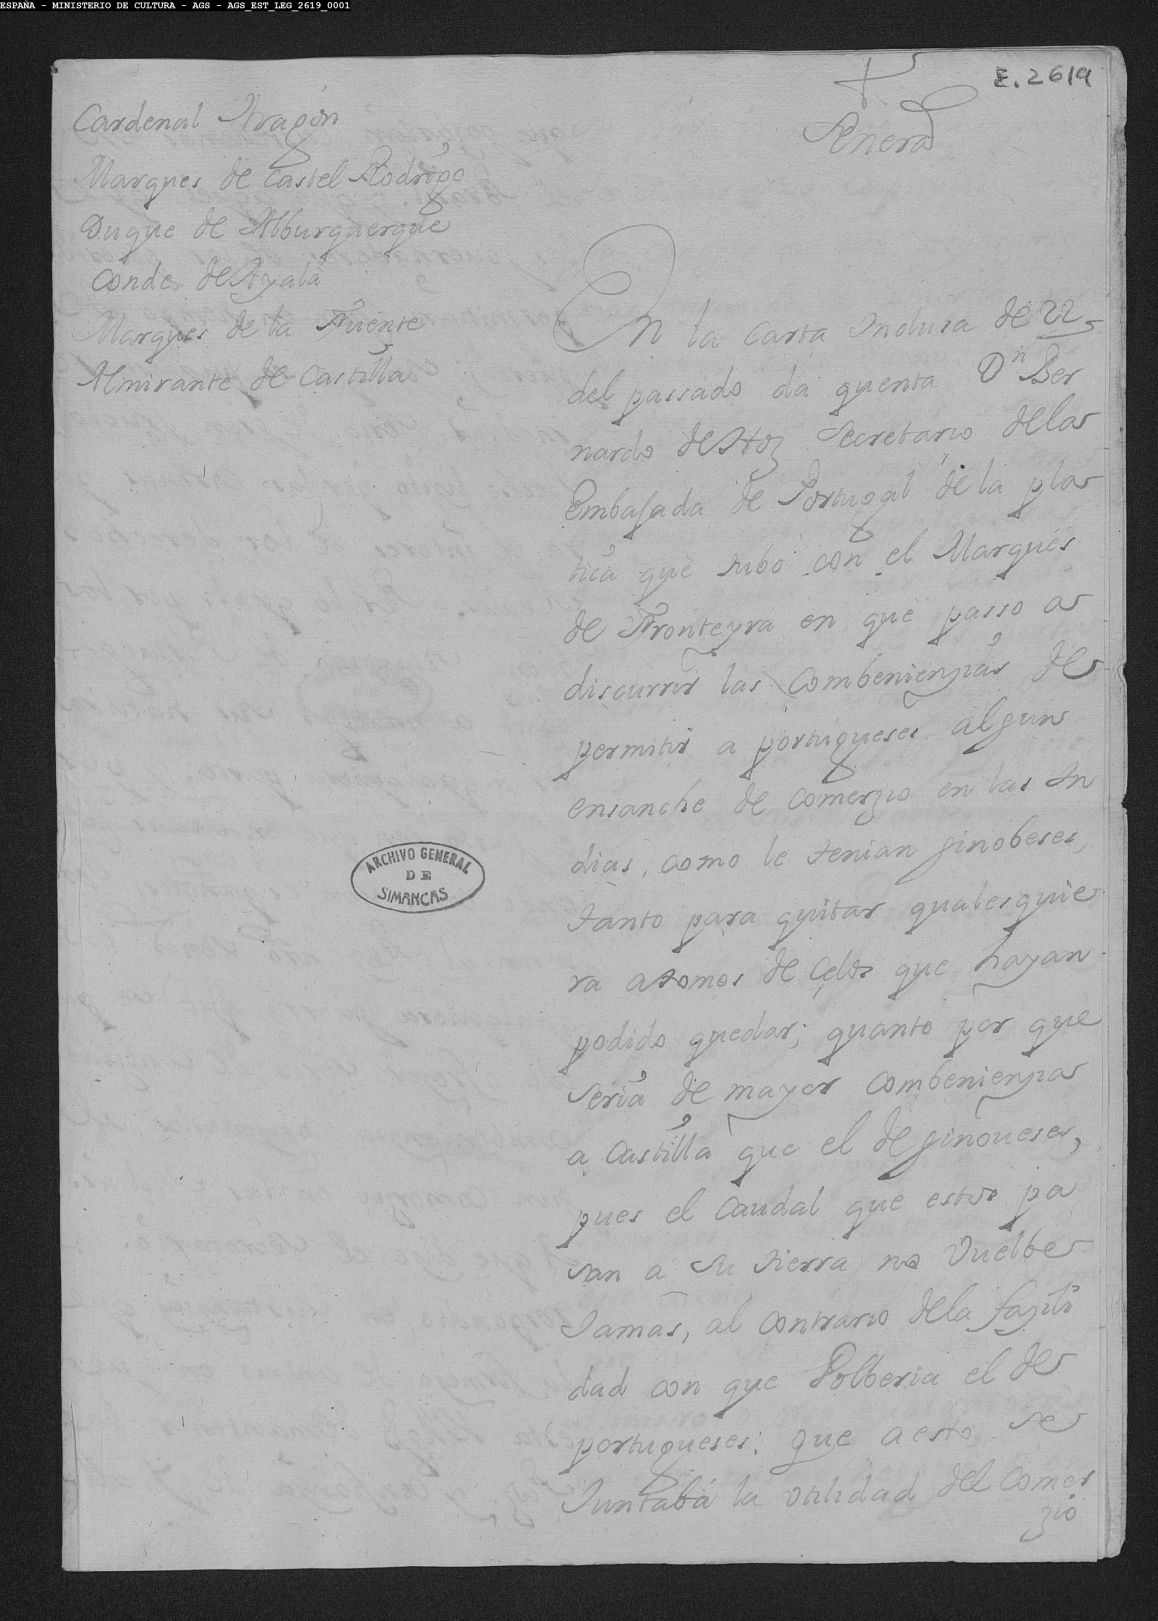 ESPAÑA - MINISTERIO DE CULTURA - AGS - AGS_EST_LEG_2619_0001
E. 2619
Cardenal Aragon
Marques de Castel Rodrigo
Duque de Alburquerque
Conde de Ayala
Marques de la Fuente
Almirante de Castilla
Señora
En la carta Inclusa de 22
del passado da quenta Dn Ber
nardo de Hoz Secretario dela
Embajada de Portugal de la pla
tica que tubo con el Marques
de Fronteyra en que passo a
discurrir las combenienzias de
permitir a portugueses algun
ensanche de comerzio en las In
dias, como le tenian ginobeses,
tanto para quitar qualesquie
ra asomos de celos que hayan
podido quedar; quanto por que
seria de mayor combenienzia
a Castilla que el de ginoveses,
pues el caudal que estos pa
san a su tierra no vuelbe
Jamas, al contrario dela fazili
dad con que Bolberia el de
portugueses: que a esto se
Juntaba la utilidad del Comer
zio
ARCHIVO GENERAL
DE
SIMANCAS